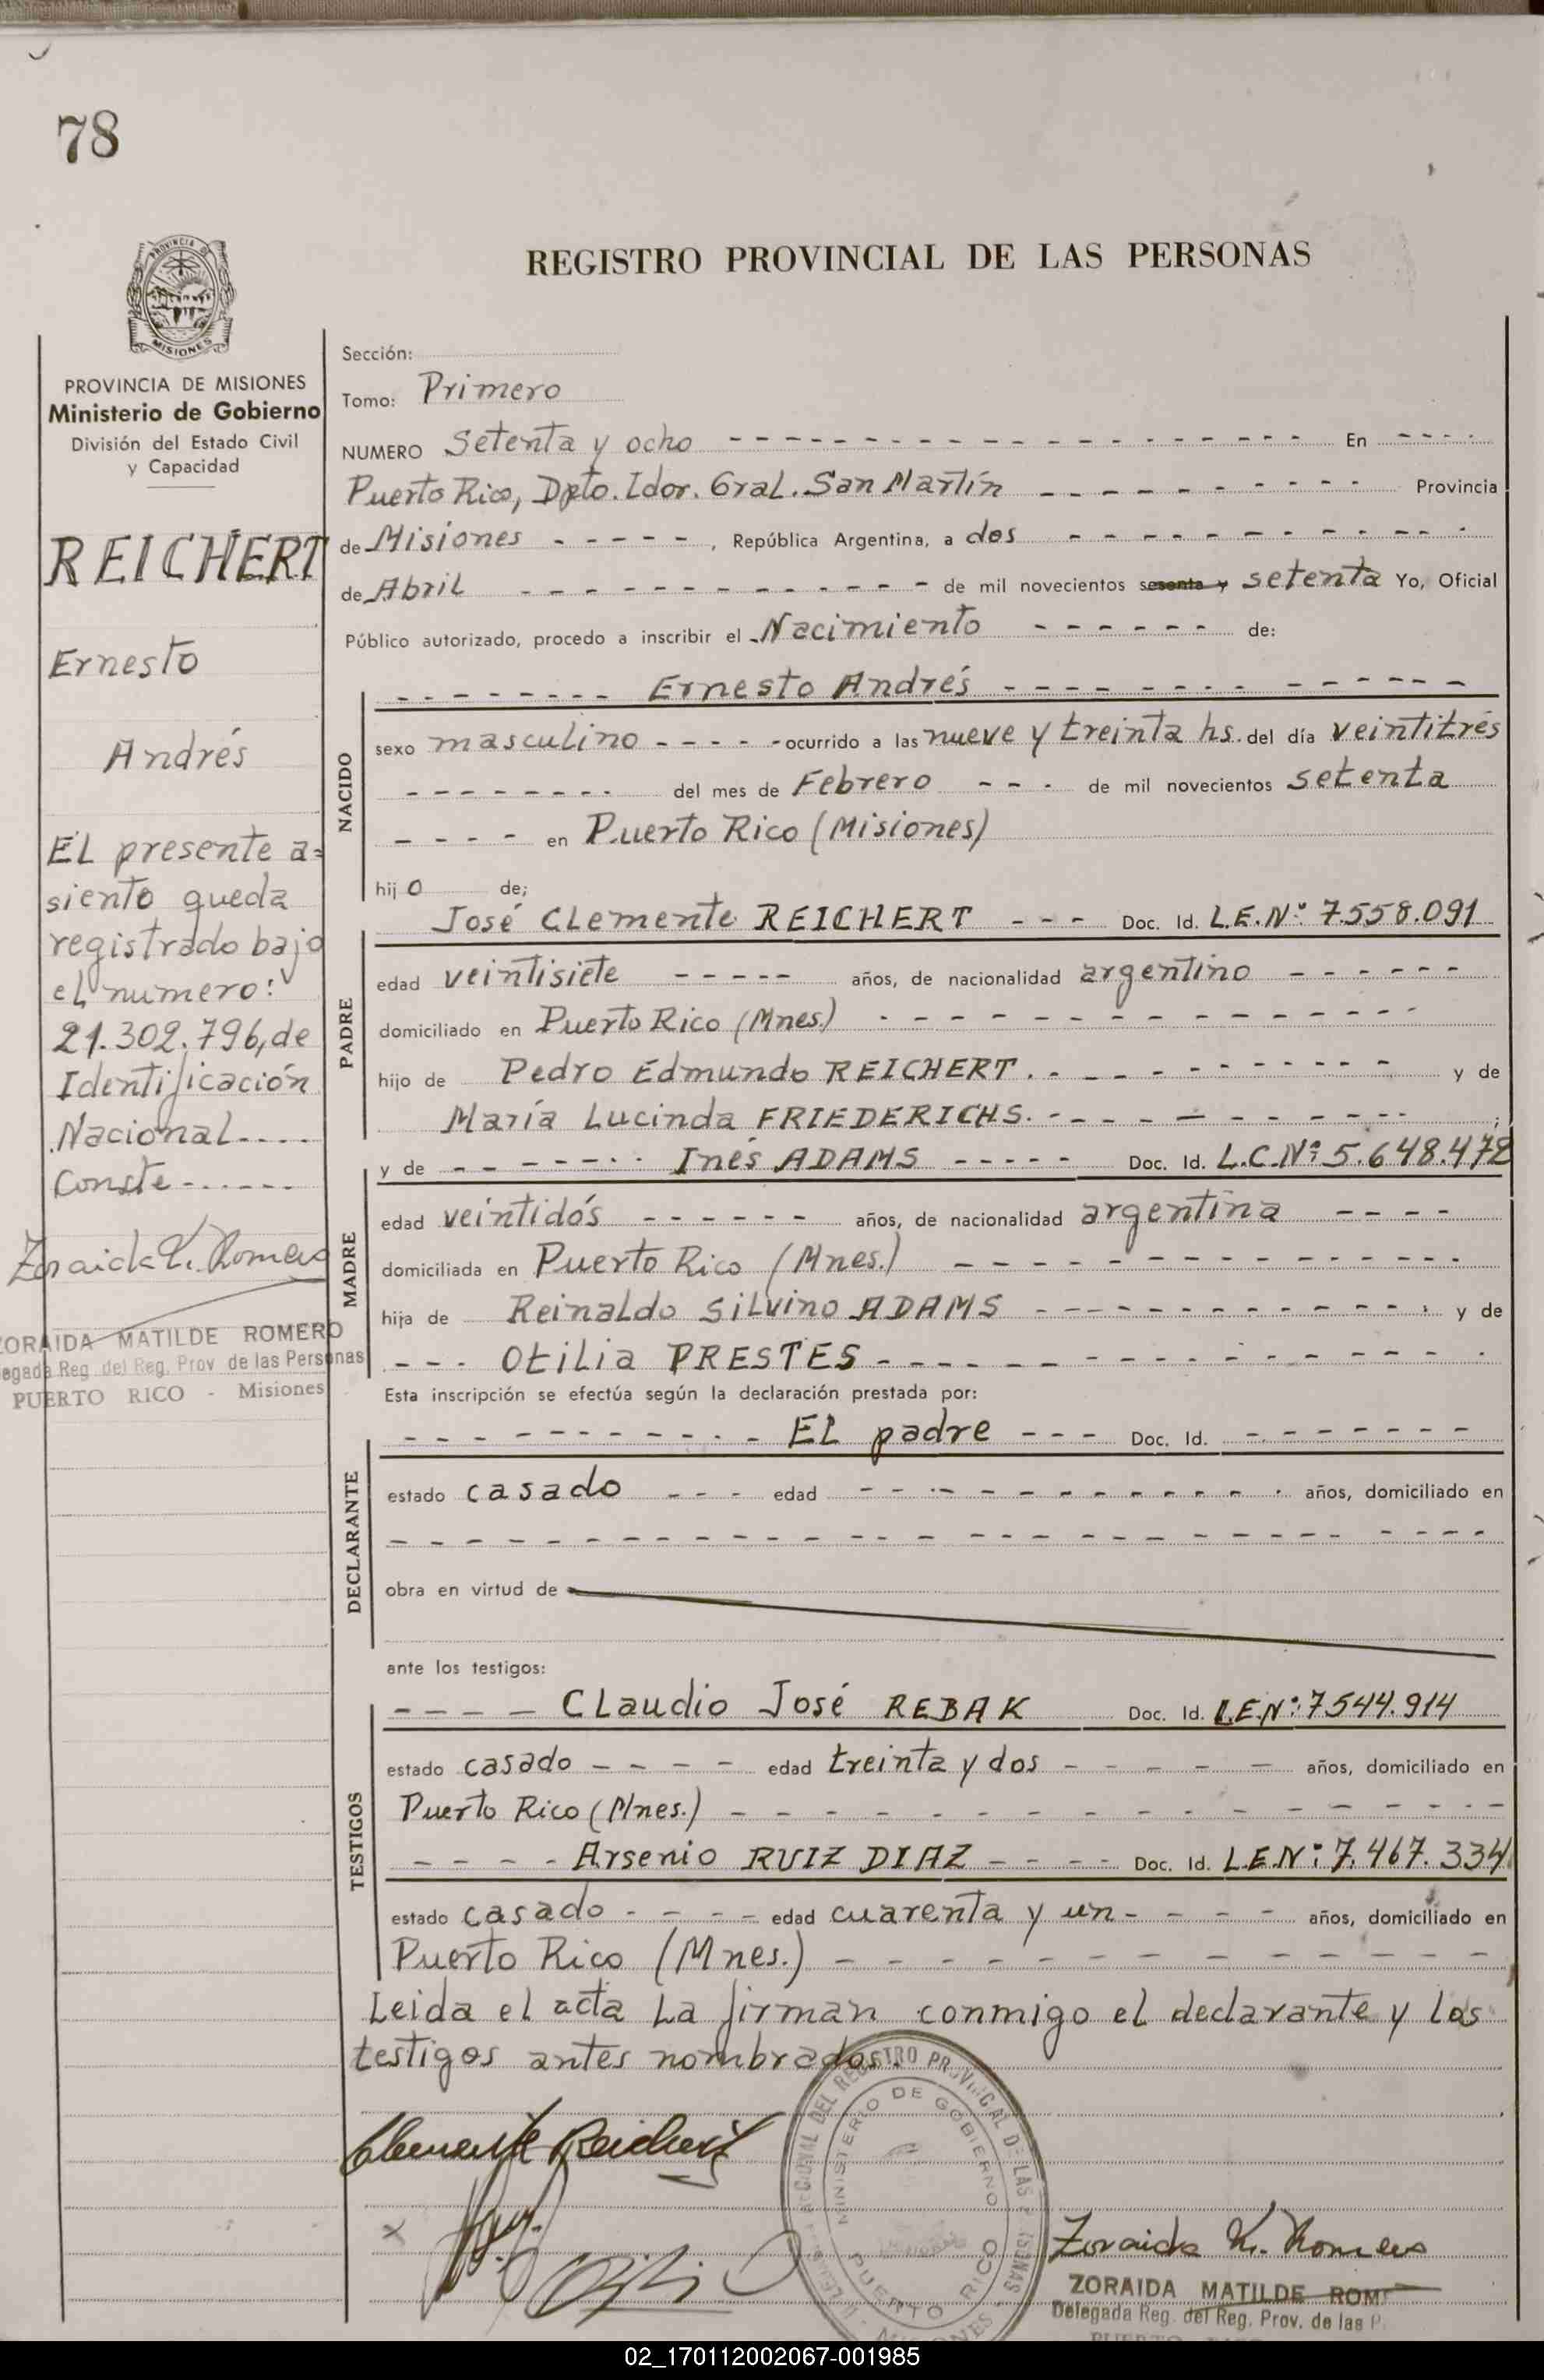 78
PROVINCIA DE
MISIONES
REGISTRO PROVINCIAL DE LAS PERSONAS
PROVINCIA DE MISIONES
Ministerio de Gobierno
División del Estado Civil
y Capacidad
REICHERT
Ernesto
Andrés
EL presente a=
siento queda
registrado bajo
el numero:
21.302.796, de
Identificación
Nacional....
Conste-......
Zoraida M. Romero
ZORAIDA MATILDE ROMERO
Delegada Reg. del Reg. Prov de las Personas
PUERTO RICO - Misiones
Sección:
Tomo: Primero
NUMERO Setenta y ocho - - - - En - - - -
Puerto Rico, Dpto. Ldor. Gral. San Martín - - - - Provincia
de Misiones - - - - - , República Argentina, a dos - - - -
de Abril - - - - de mil novecientos sesenta y setenta Yo, Oficial
Público autorizado, procedo a inscribir el Nacimiento - - - - de:
- - - - Ernesto Andrés - - - -
NACIDO
sexo masculino - - - - ocurrido a las nueve y treinta hs. del día veintitrés
- - - - del mes de Febrero - - - de mil novecientos setenta
- - - - en Puerto Rico (Misiones)
hijo de;
José Clemente REICHERT - - - Doc. Id. L.E.Nº 7.558.091
PADRE
edad veintisiete - - - - - años, de nacionalidad argentino - - - -
domiciliado en Puerto Rico (Mnes.) - - - -
hijo de Pedro Edmundo REICHERT. - - - - y de
María Lucinda FRIEDERICHS. - - - - ;
y de - - - - Inés ADAMS - - - - - Doc. Id. L.C.Nº 5.648.472
MADRE
edad veintidós - - - - años, de nacionalidad argentina - - - -
domiciliada en Puerto Rico (Mnes.) - - - -
hija de Reinaldo Silvino ADAMS - - - - y de
- - - Otilia PRESTES - - - -
Esta inscripción se efectúa según la declaración prestada por:
- - - - El padre - - - Doc. Id. - - - -
DECLARANTE
estado casado - - - edad - - - - años, domiciliado en
- - - -
obra en virtud de
ante los testigos:
- - - - Claudio José REBAK Doc. Id. L.E.Nº: 7544.914
TESTIGOS
estado casado - - - - edad treinta y dos - - - - años, domiciliado en
Puerto Rico (Mnes.) - - - -
- - - - Arsenio RUIZ DIAZ - - - - Doc. Id. L.E.Nº: 7.467.334
estado casado - - - - edad cuarenta y un - - - - años, domiciliado en
Puerto Rico (Mnes.) - - - -
Leida el acta La firman conmigo el declarante y los
testigos antes nombrados.
Clemente Reichert
REGIONAL DEL REGISTRO PROVINCIAL DE LAS PERSONAS
MINISTERIO DE GOBIERNO
PUERTO RICO
MISIONES
Zoraida M. Romero
ZORAIDA MATILDE ROM
Delegada Reg. del Reg. Prov. de las P
02_170112002067-001985